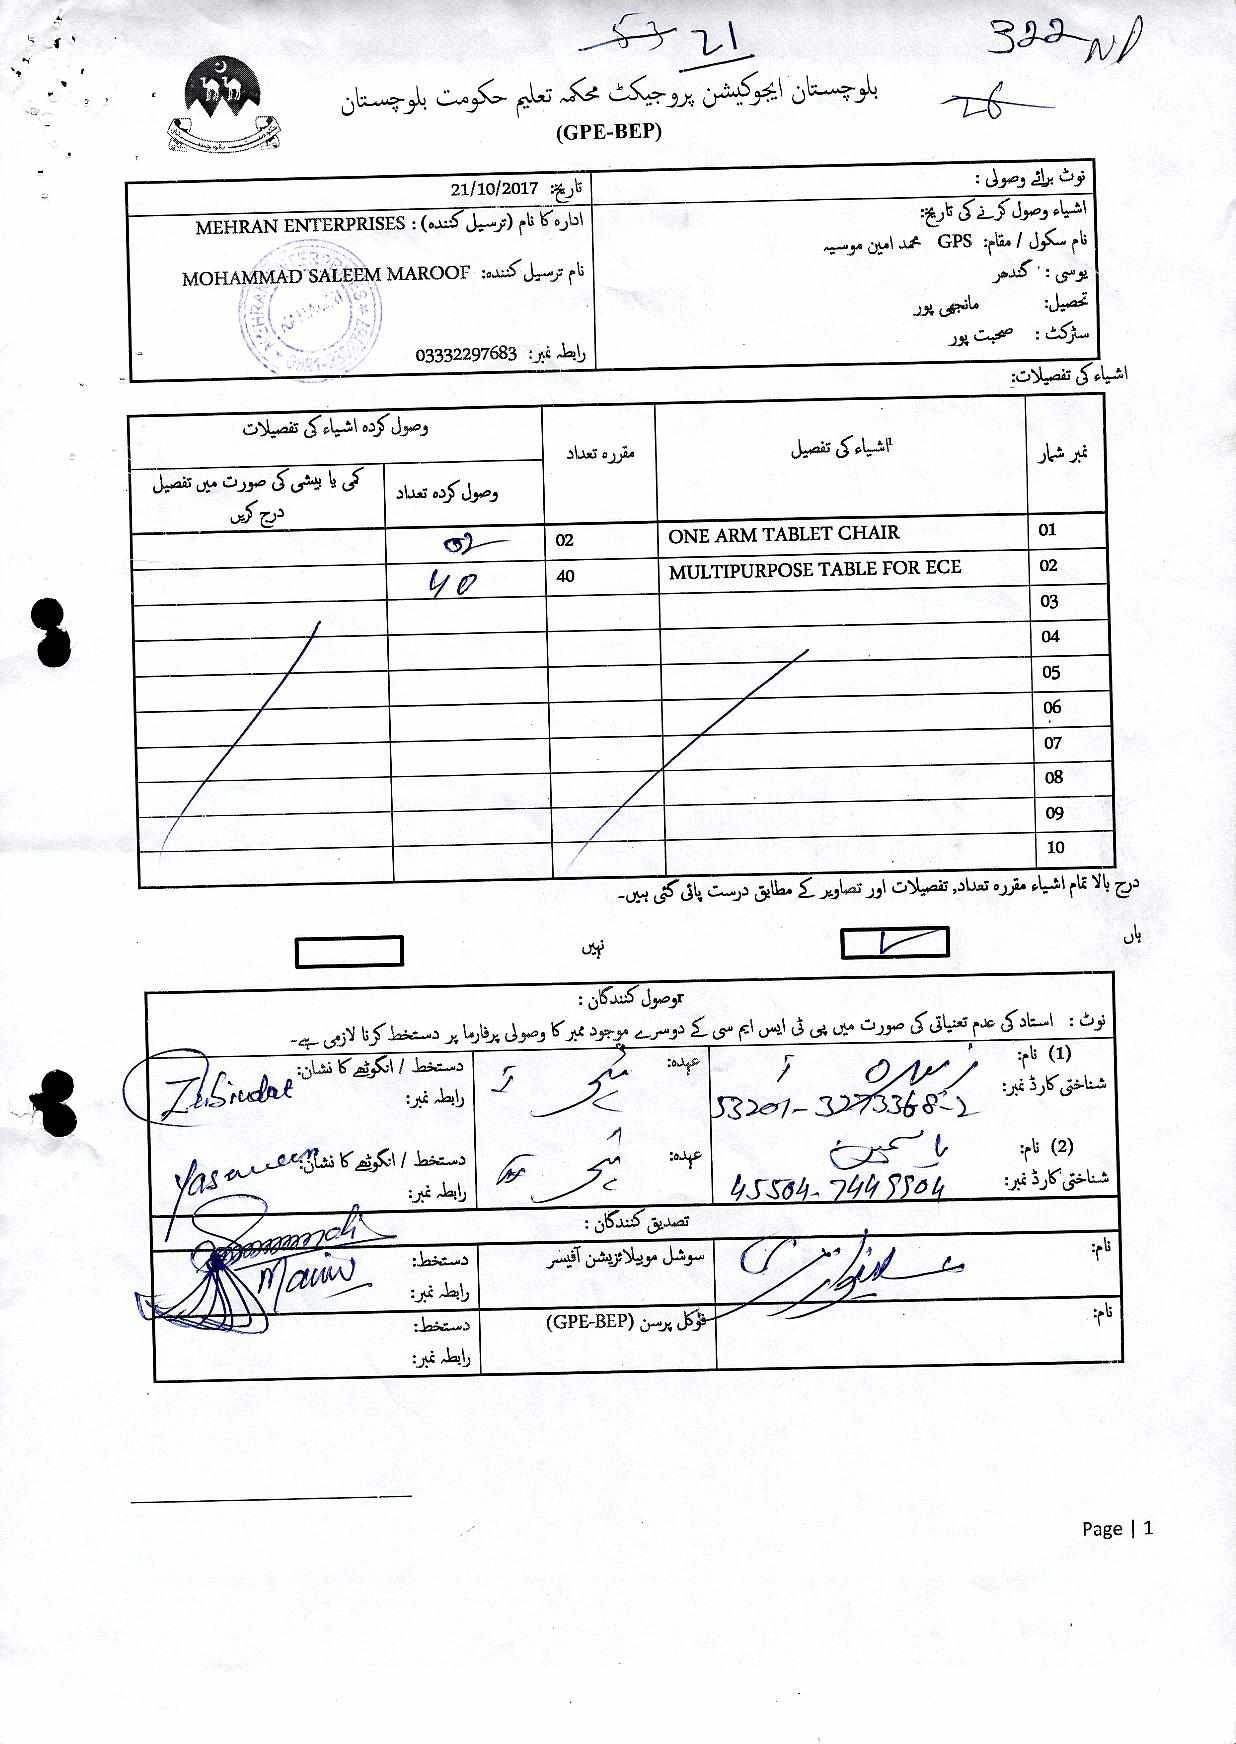 53 21
322
26
بلوچستان ایجوکیشن پروجیکٹ محکمہ تعلیم حکومت بلوچستان
(GPE-BEP)
نوٹ برائے وصولی :
اشیاء وصول کرنے کی تاریخ:
نام سکول / مقام: GPS محمد امین موسیہ
یوسی : گندھر
تحصیل: مانجھی پور
سٹرکٹ : صحبت پور
تاریخ: 21/10/2017
ادارہ کا نام (ترسیل کنندہ) : MEHRAN ENTERPRISES
نام ترسیل کنندہ: MOHAMMAD SALEEM MAROOF
رابطہ نمبر: 03332297683
اشیاء کی تفصیلات:
نمبر شمار اشیاء کی تفصیل مقررہ تعداد وصول کردہ اشیاء کی تفصیلات
وصول کردہ تعداد کمی یا بیشی کی صورت میں تفصیل درج کریں
01 ONE ARM TABLET CHAIR 02 02
02 MULTIPURPOSE TABLE FOR ECE 40 40
03
04
05
06
07
08
09
10
درج بالا تمام اشیاء مقررہ تعداد, تفصیلات اور تصاویر کے مطابق درست پائی گئی ہیں۔
ہاں نہیں
وصول کنندگان :
نوٹ : استاد کی عدم تعنیاتی کی صورت میں پی ٹی ایس ایم سی کے دوسرے موجود ممبر کا وصولی پرفارما پر دستخط کرنا لازمی ہے۔
(1) نام: عہدہ: دستخط / انگوٹھے کا نشان:
شناختی کارڈ نمبر: 53201-3273368-2 رابطہ نمبر:
(2) نام: یاسمین عہدہ: دستخط / انگوٹھے کا نشان: Yasmeen
شناختی کارڈ نمبر: رابطہ نمبر:
تصدیق کنندگان :
نام: سوشل موبیلائزیشن آفیسر دستخط:
رابطہ نمبر:
نام: فوکل پرسن (GPE-BEP) دستخط:
رابطہ نمبر:
Page | 1